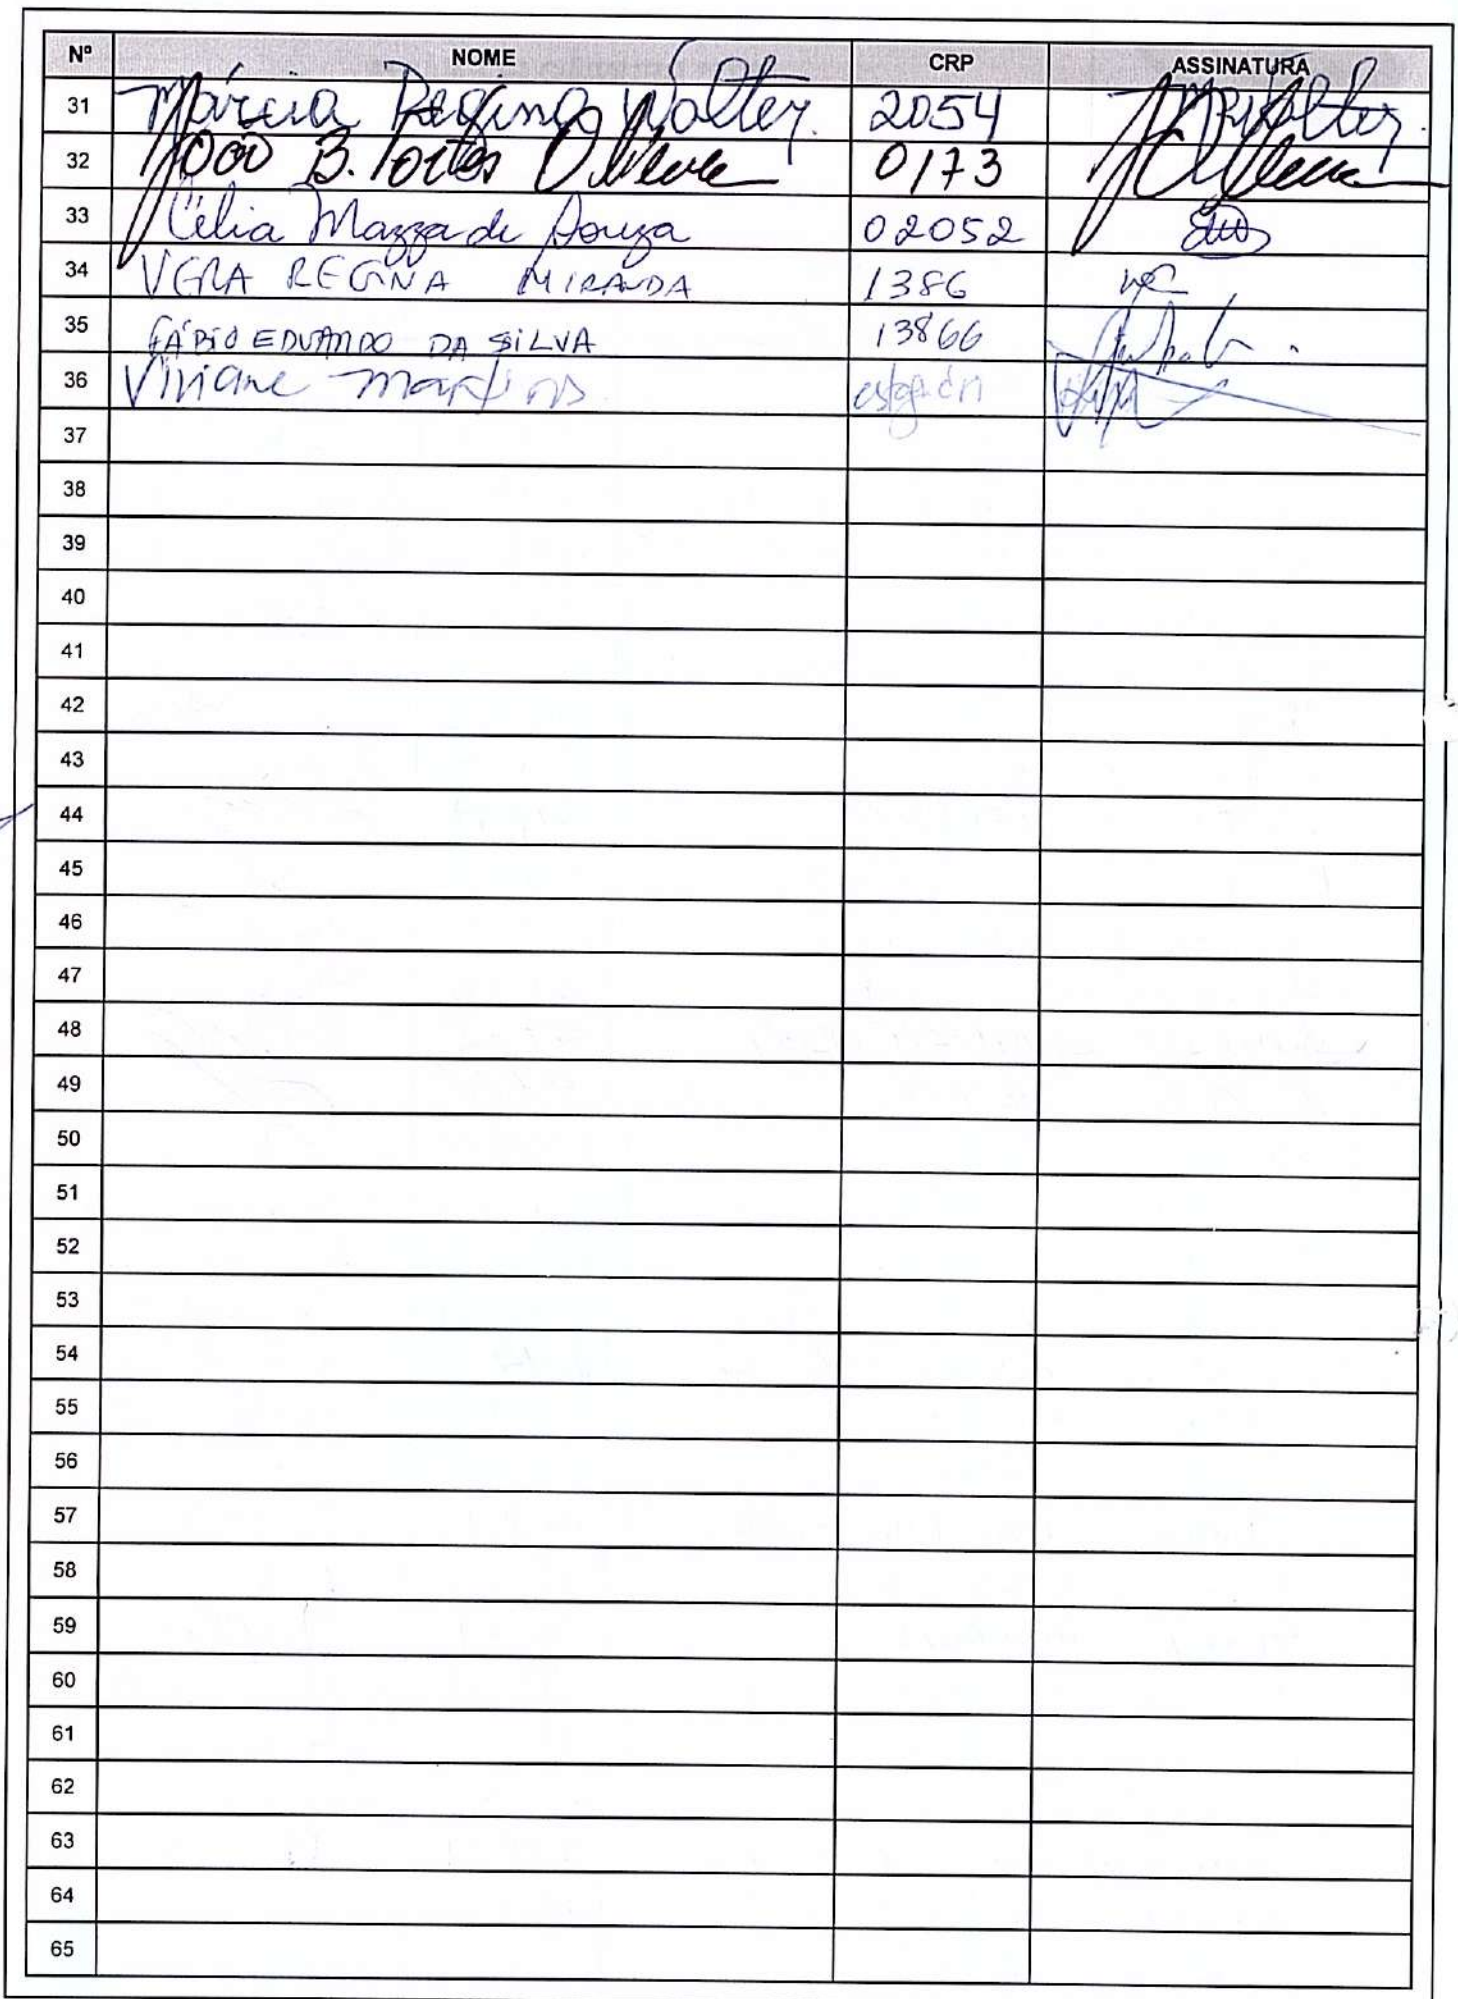 Nº NOME CRP ASSINATURA
31 Márcia Regina Walter 2054 MRWalter
32 João B. Fortes Oliveira 0173
33 Célia Mazza de Souza 02052
34 VERA REGINA MIRANDA 1386
35 FÁBIO EDUARDO DA SILVA 13866
36 Viviane Martins
37
38
39
40
41
42
43
44
45
46
47
48
49
50
51
52
53
54
55
56
57
58
59
60
61
62
63
64
65